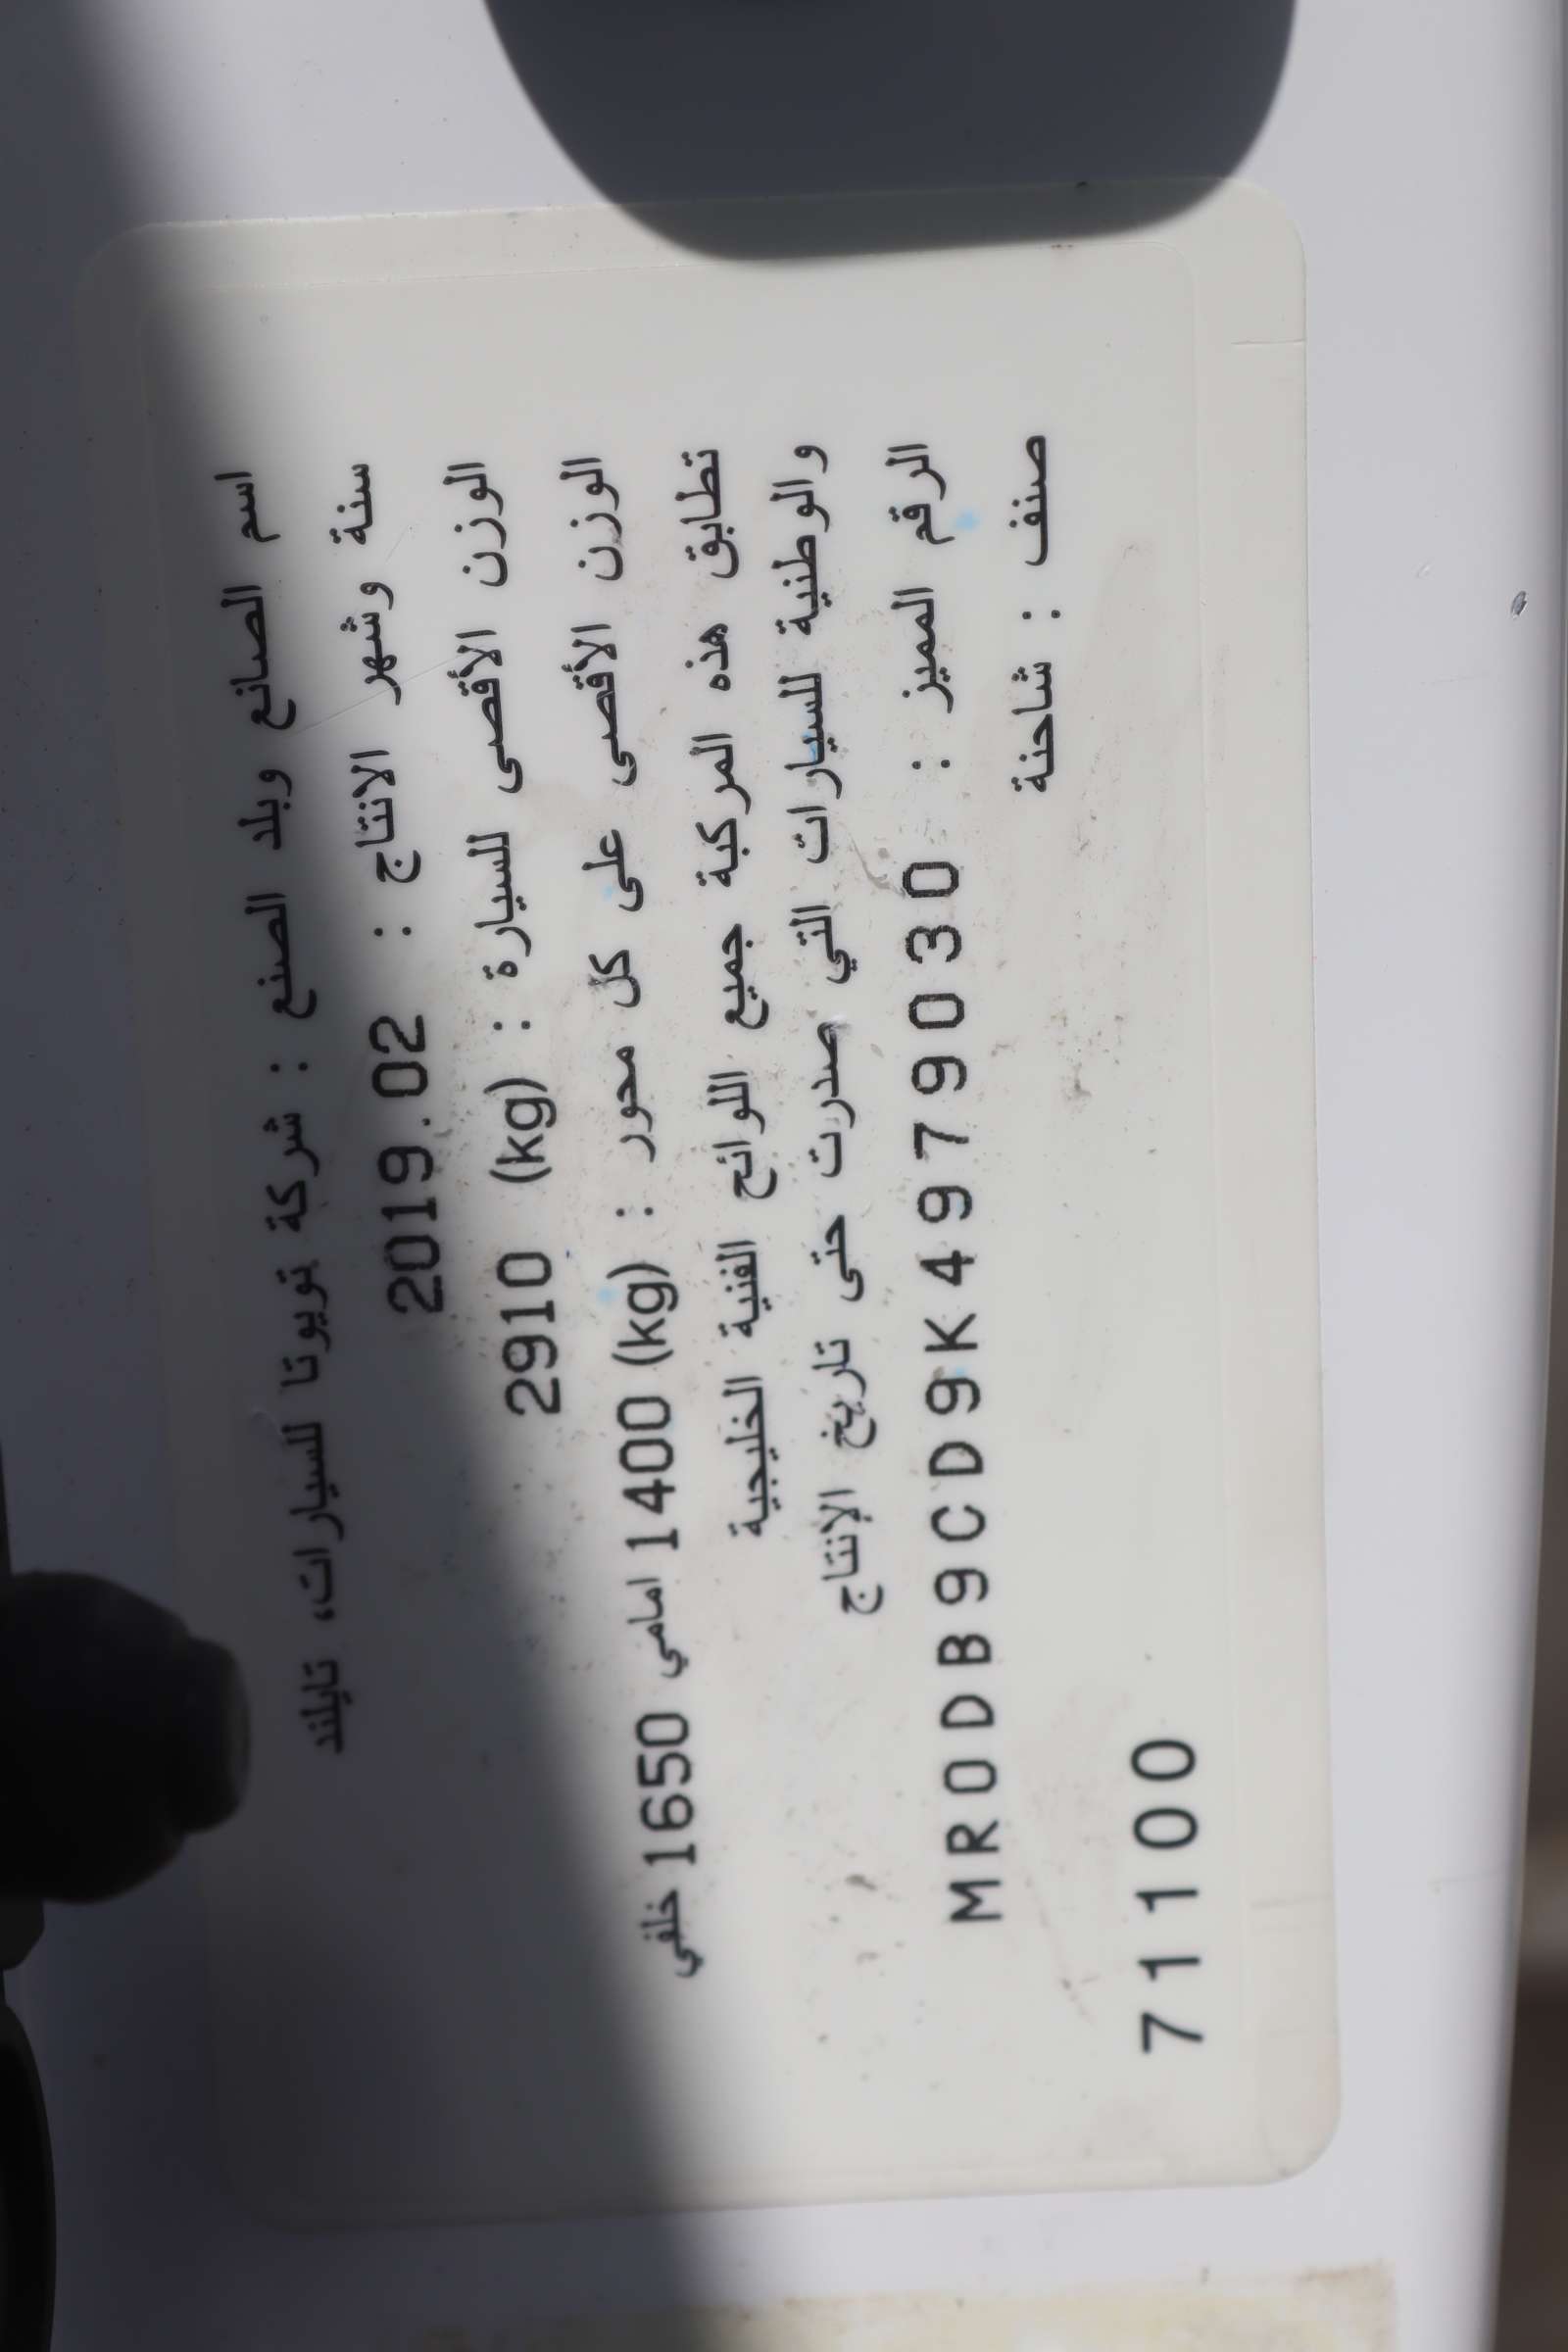 اسم الصانع وبلد الصنع : شركة تويوتا للسيارات، تايلند
سنة وشهر الانتاج : 2019.02
الوزن الأقصى للسيارة : (kg) 2910
الوزن الأقصى على كل محور : (kg) 1400 امامي 1650 خلفي
تطابق هذه المركبة جميع اللوائح الفنية الخليجية
والوطنية للسيارات التي صدرت حتى تاريخ الإنتاج
الرقم المميز : MR0DB9CD9K4979030
صنف : شاحنة
71100